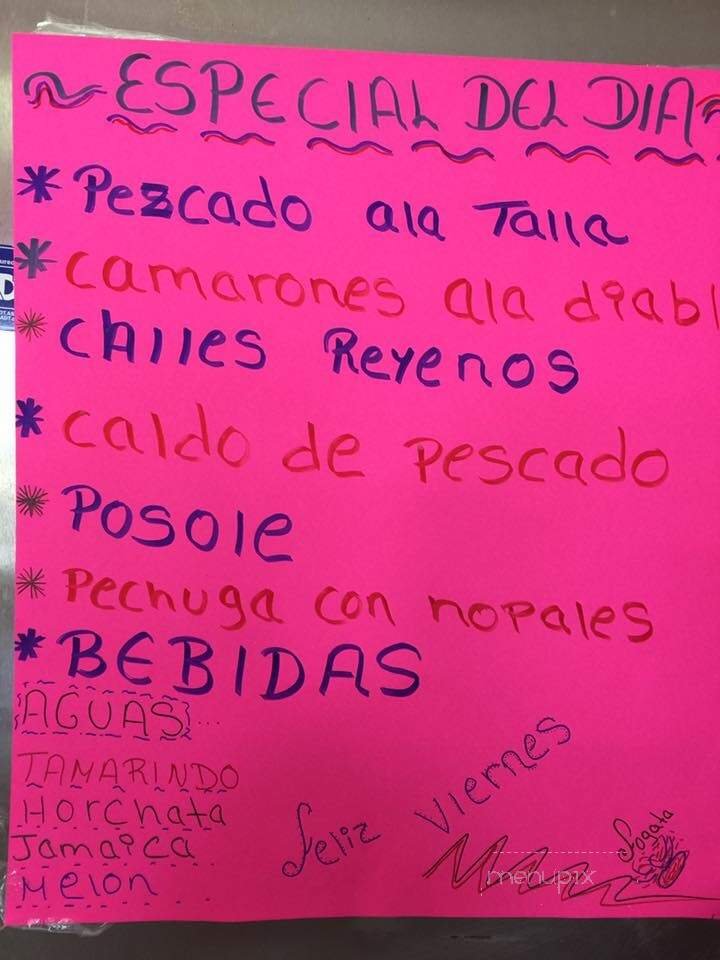 ESPECIAL DEL DIA
* Pezcado ala Talla
* camarones ala diabl
* chiles Reyenos
* caldo de pescado
* Posole
* Pechuga con nopales
* BEBIDAS
AGUAS...
TAMARINDO
Horchata
Jamaica
Melon
feliz Viernes
fogata
menupix